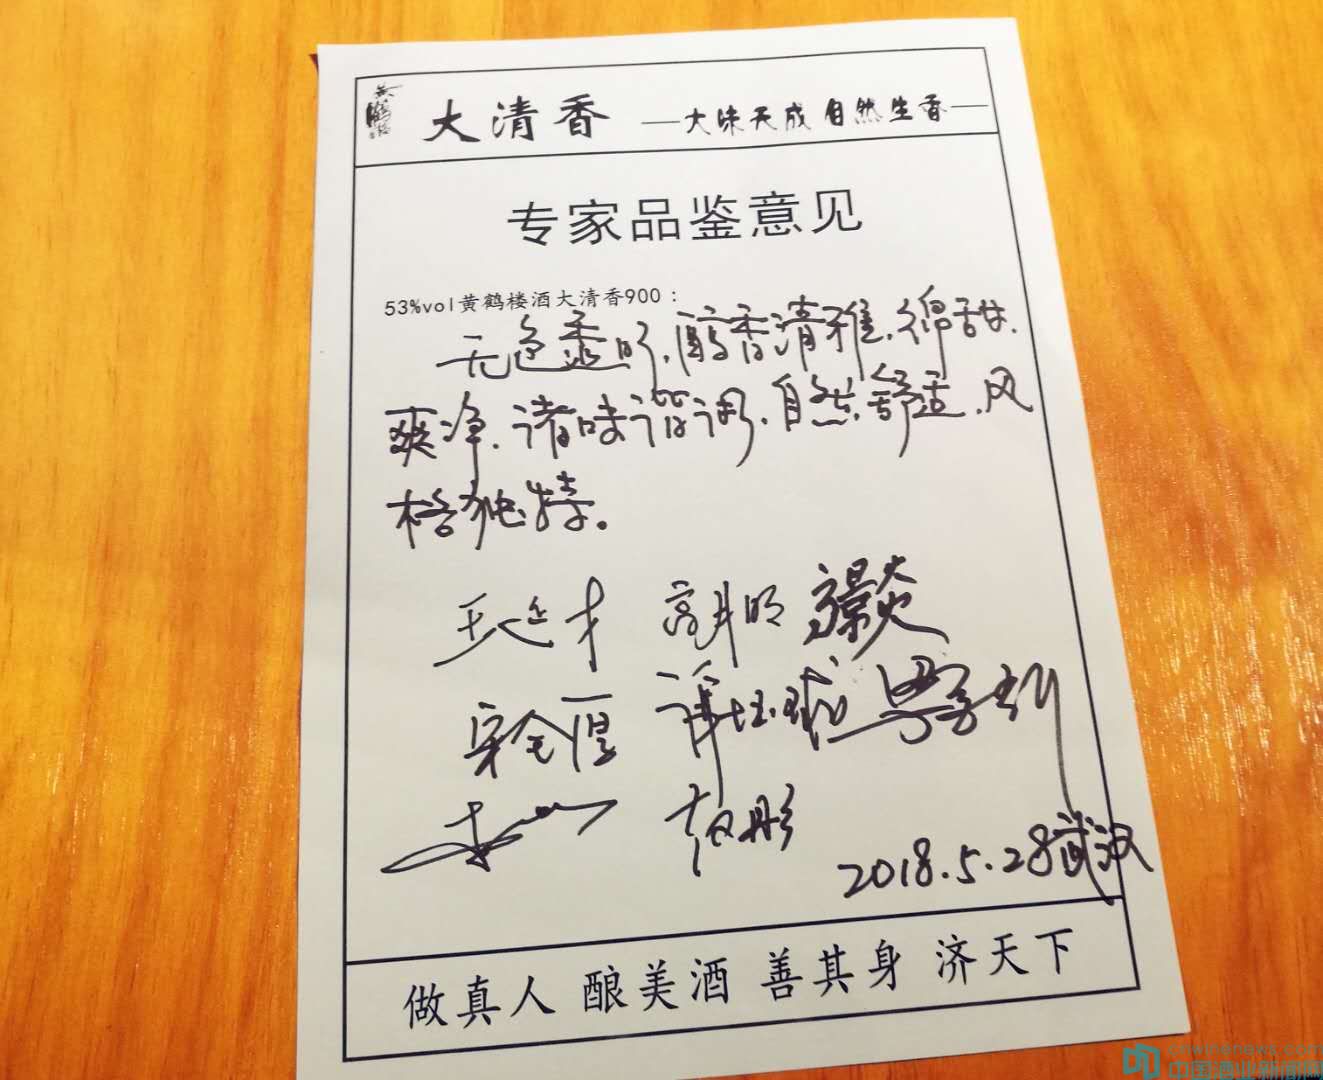 黄鹤楼 大清香 —大味天成 自然生香—
专家品鉴意见
53%vol黄鹤楼酒大清香900：
无色透明，醇香清雅，绵甜，
爽净，诸味谐调，自然，舒适，风
格独特。
王延才 高月明
宋全厚
2018.5.28武汉
做真人 酿美酒 善其身 济天下
cnwinenews.com
中国酒业新闻网